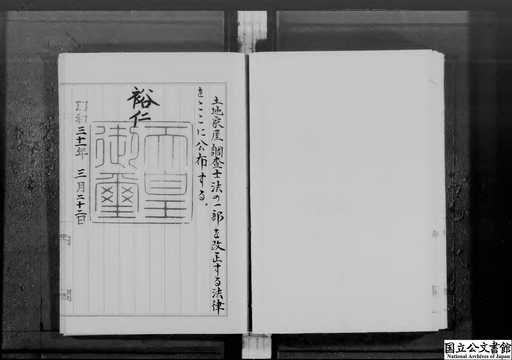 土地家屋調査士法の一部を改正する法律
をここに公布する。
裕仁
天皇御璽
昭和三十一年三月二十二日
国立公文書館
National Archives of Japan